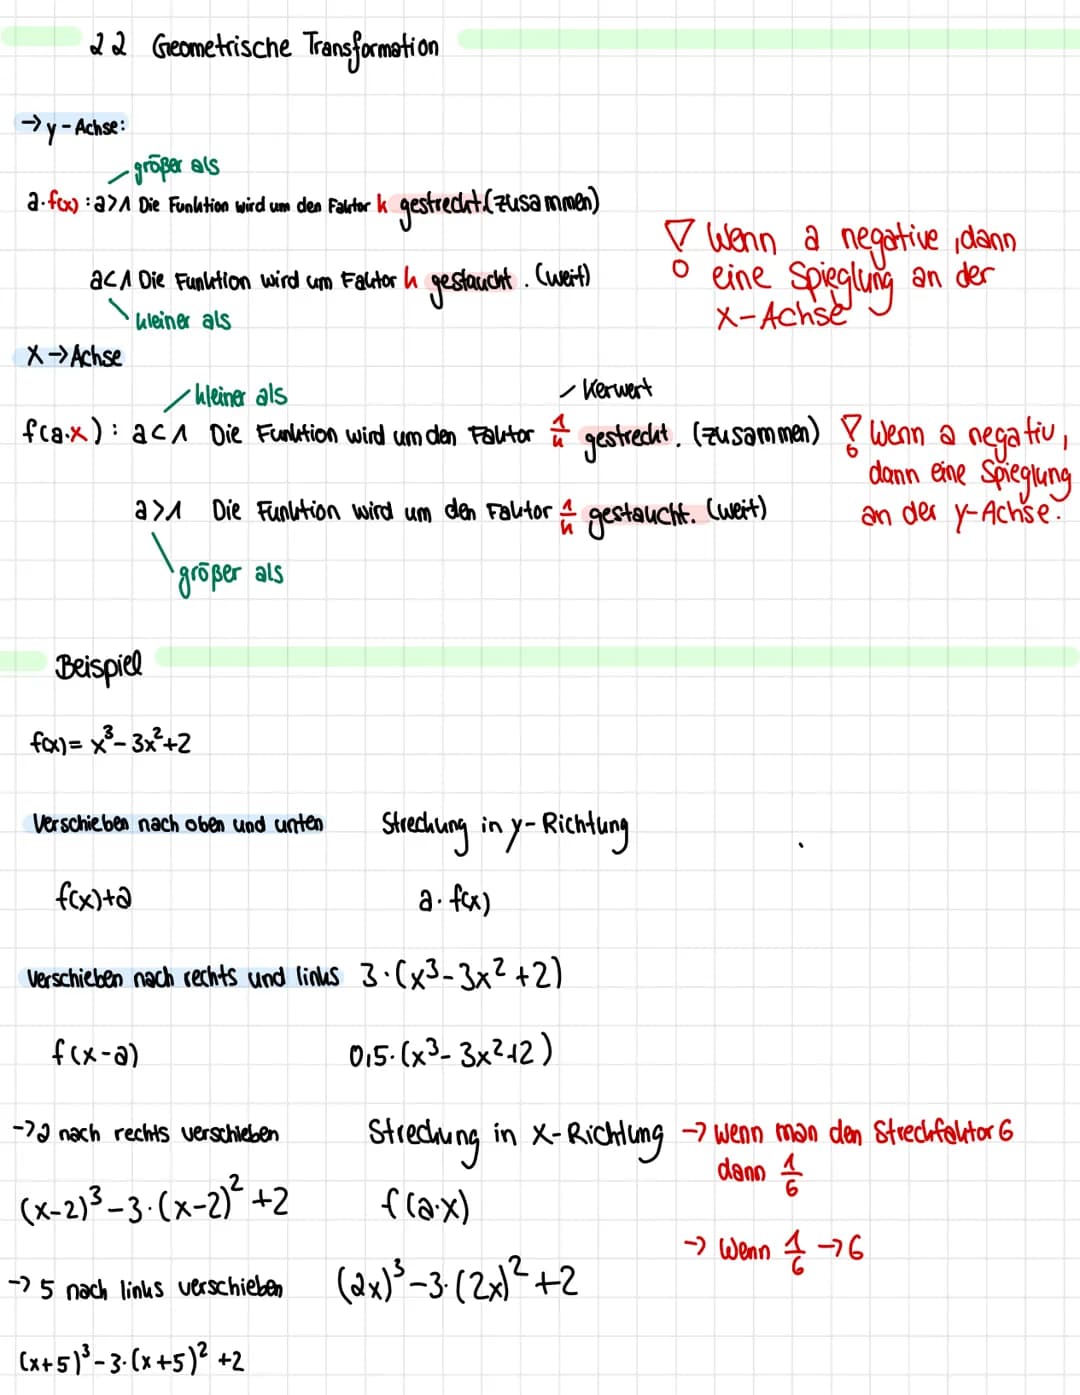 2 2 Geometrische Transformation
→ y-Achse:
größer als
a·f(x) : a>1 Die Funktion wird um den Faktor k gestreckt.(zusammen)
a<1 Die Funktion wird um Faktor k gestaucht. (weit)
kleiner als
! Wenn a negative, dann
eine Spieglung an der
x-Achse
X→Achse
kleiner als
Kerwert
f(a·x) : a<1 Die Funktion wird um den Faktor 1/k gestreckt. (zusammen)
! Wenn a negativ,
dann eine Spieglung
an der y-Achse.
a>1 Die Funktion wird um den Faktor 1/k gestaucht. (weit)
größer als
Beispiel
f(x)= x³-3x²+2
Verschieben nach oben und unten
Streckung in y-Richtung
f(x)+a
a·f(x)
Verschieben nach rechts und links
3·(x³-3x²+2)
f(x-a)
0,5·(x³-3x²+2)
→2 nach rechts verschieben
Streckung in x-Richtung
→ wenn man den Streckfaktor 6
dann 1/6
(x-2)³-3·(x-2)²+2
f(a·x)
→ Wenn 1/6 →6
→ 5 nach links verschieben
(2x)³-3·(2x)²+2
(x+5)³-3·(x+5)²+2